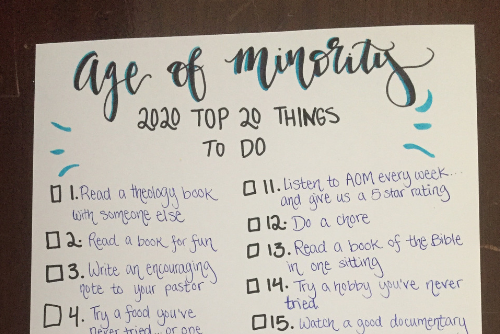 Age of Minority
2020 TOP 20 THINGS
TO DO
1. Read a theology book
with someone else
2. Read a book for fun
3. Write an encouraging
note to your pastor
4. Try a food you've
never tried...or one
11. Listen to AOM every week...
and give us a 5 star rating
12. Do a chore
13. Read a book of the Bible
in one sitting
14. Try a hobby you've never
tried
15. Watch a good documentary